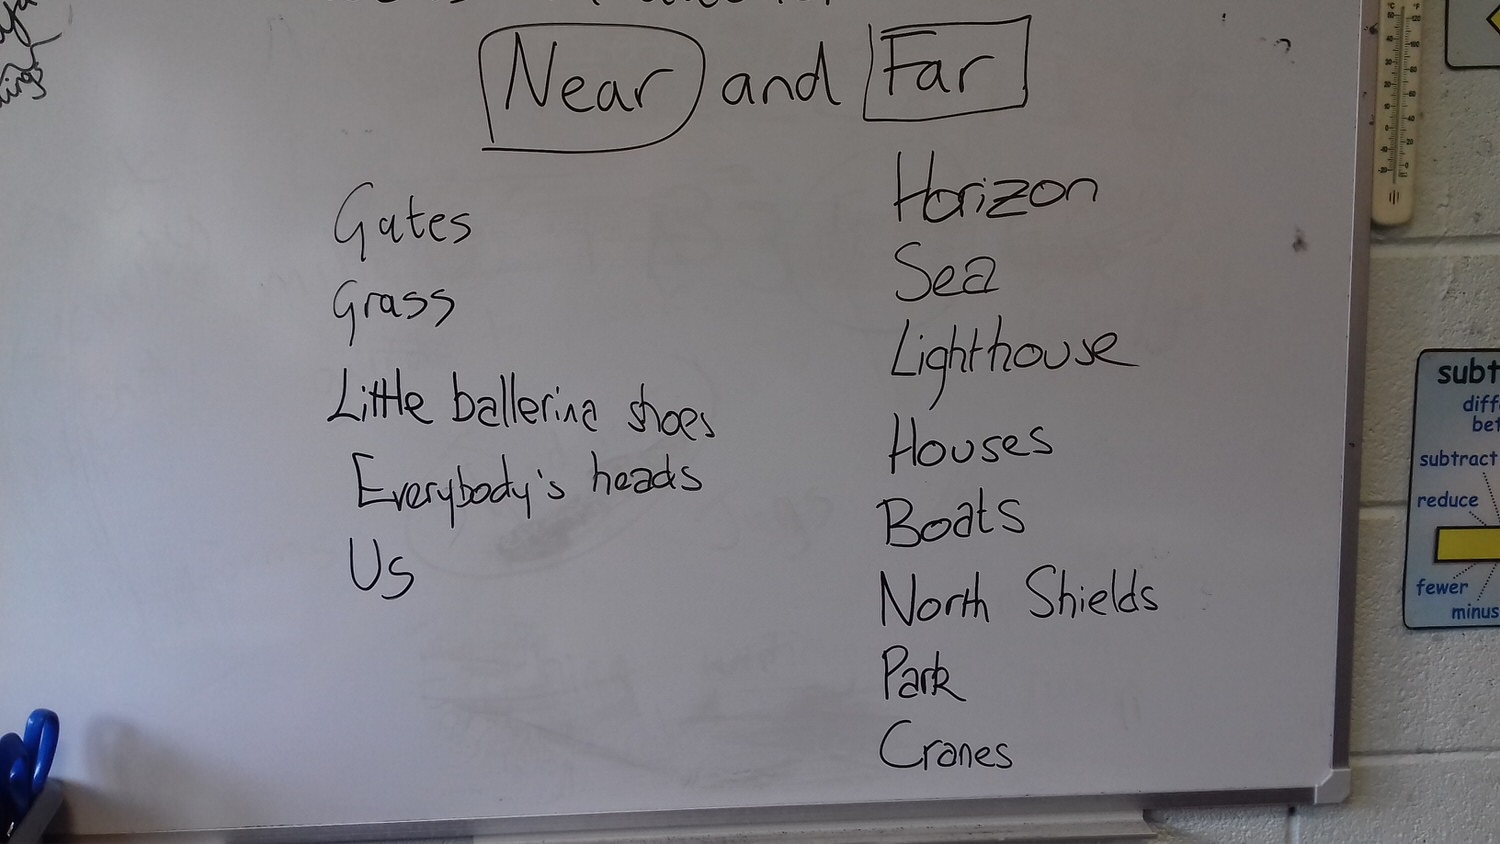 Near and Far
Gates
Grass
Little ballerina shoes
Everybody's heads
Us
Horizon
Sea
Lighthouse
Houses
Boats
North Shields
Park
Cranes
subtract
reduce
fewer
minus